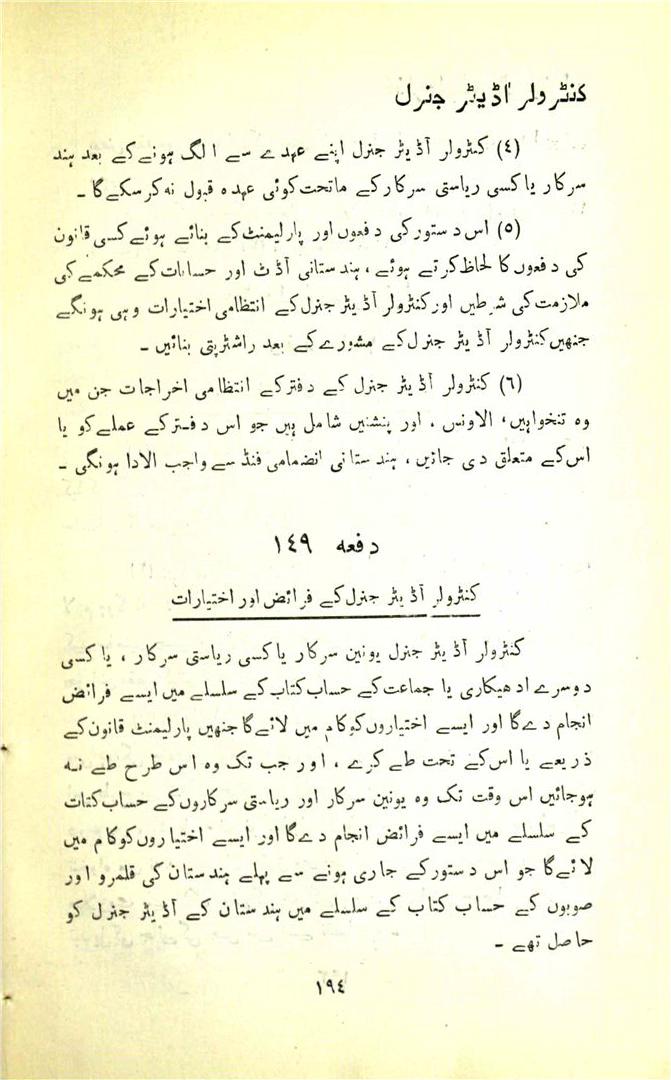 کنٹرولر اڈیٹر جنرل
(٤) کنٹرولر آڈیٹر جنرل اپنے عہدے سے الگ ہونے کے بعد ہند
سرکار یا کسی ریاستی سرکار کے ماتحت کوئی عہدہ قبول نہ کر سکے گا ۔
(٥) اس دستور کی دفعوں اور پارلیمنٹ کے بنائے ہوئے کسی قانون
کی دفعوں کا لحاظ کرتے ہوئے ، ہندستانی آڈٹ اور حسابات کے محکمے کی
ملازمت کی شرطیں اور کنٹرولر آڈیٹر جنرل کے انتظامی اختیارات وہی ہونگے
جنھیں کنٹرولر آڈیٹر جنرل کے مشورے کے بعد راشٹرپتی بنائیں ۔
(٦) کنٹرولر آڈیٹر جنرل کے دفتر کے انتظامی اخراجات جن میں
وہ تنخواہیں، الاونس ، اور پنشنیں شامل ہیں جو اس دفتر کے عملے کو یا
اس کے متعلق دی جائیں ، ہندستانی انضمامی فنڈ سے واجب الادا ہونگی ۔
دفعہ ١٤٩
کنٹرولر آڈیٹر جنرل کے فرائض اور اختیارات
کنٹرولر آڈیٹر جنرل یونین سرکار یا کسی ریاستی سرکار ، یا کسی
دوسرے ادھیکاری یا جماعت کے حساب کتاب کے سلسلے میں ایسے فرائض
انجام دے گا اور ایسے اختیاروں کو کام میں لائے گا جنھیں پارلیمنٹ قانون کے
ذریعے یا اس کے تحت طے کرے ، اور جب تک وہ اس طرح طے نہ
ہو جائیں اس وقت تک وہ یونین سرکار اور ریاستی سرکاروں کے حساب کتاب
کے سلسلے میں ایسے فرائض انجام دے گا اور ایسے اختیاروں کو کام میں
لائے گا جو اس دستور کے جاری ہونے سے پہلے ہندستان کی قلمرو اور
صوبوں کے حساب کتاب کے سلسلے میں ہندستان کے آڈیٹر جنرل کو
حاصل تھے ۔
١٩٤